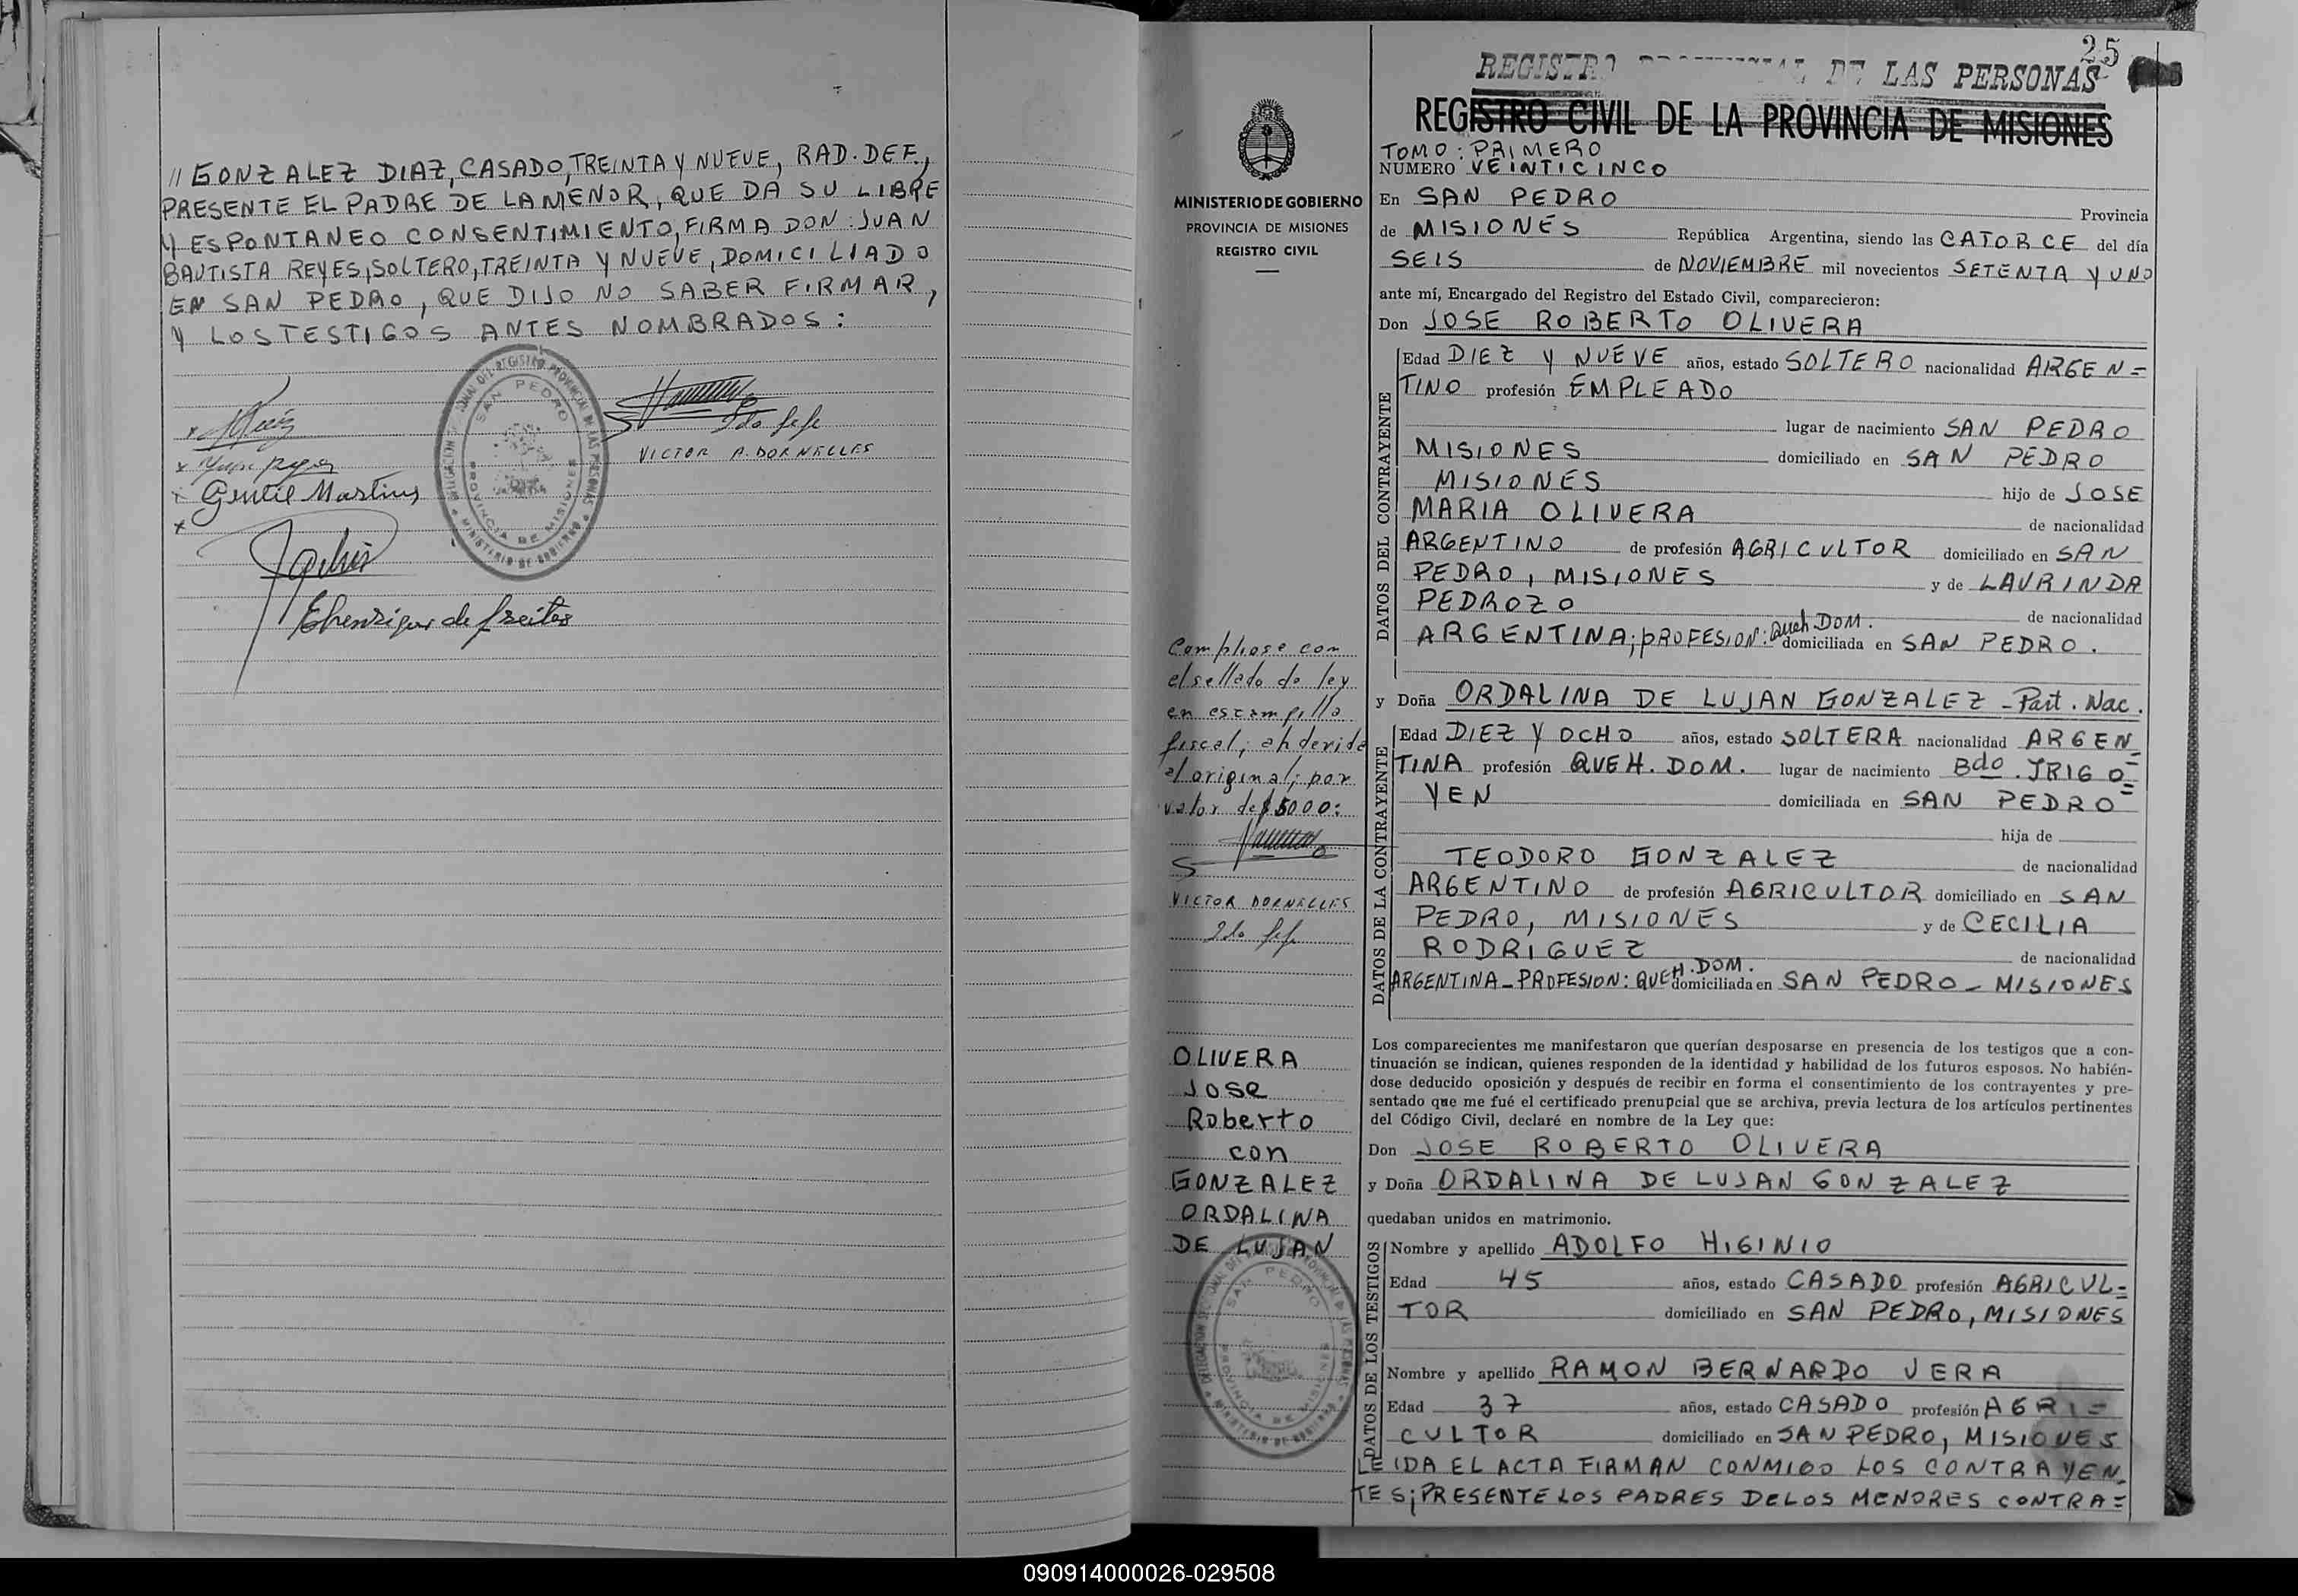 // GONZALEZ DIAZ, CASADO, TREINTA Y NUEVE, RAD. DEF.,
PRESENTE EL PADRE DE LA MENOR, QUE DA SU LIBRE
Y ESPONTANEO CONSENTIMIENTO, FIRMA DON: JUAN
BAUTISTA REYES, SOLTERO, TREINTA Y NUEVE, DOMICILIADO
EN SAN PEDRO, QUE DIJO NO SABER FIRMAR,
Y LOS TESTIGOS ANTES NOMBRADOS:
2do Jefe
VICTOR A. DORNELLES
Gentil Martins
Ehenrique de freitas
SAN PEDRO
PROVINCIA DE MISIONES
MINISTERIO DE GOBIERNO
25
REGISTRO PROVINCIAL DE LAS PERSONAS
REGISTRO CIVIL DE LA PROVINCIA DE MISIONES
MINISTERIO DE GOBIERNO
PROVINCIA DE MISIONES
REGISTRO CIVIL
TOMO: PRIMERO
NUMERO VEINTICINCO
En SAN PEDRO Provincia
de MISIONES República Argentina, siendo las CATORCE del día
SEIS de NOVIEMBRE mil novecientos SETENTA Y UNO
ante mí, Encargado del Registro del Estado Civil, comparecieron:
Don JOSE ROBERTO OLIVERA
DATOS DEL CONTRAYENTE
Edad DIEZ Y NUEVE años, estado SOLTERO nacionalidad ARGEN=
TINO profesión EMPLEADO
lugar de nacimiento SAN PEDRO
MISIONES domiciliado en SAN PEDRO
MISIONES hijo de JOSE
MARIA OLIVERA de nacionalidad
ARGENTINO de profesión AGRICULTOR domiciliado en SAN
PEDRO, MISIONES y de LAURINDA
PEDROZO de nacionalidad
ARGENTINA; PROFESION: Queh DOM. domiciliada en SAN PEDRO.
y Doña ORDALINA DE LUJAN GONZALEZ - Part. Nac.
DATOS DE LA CONTRAYENTE
Edad DIEZ Y OCHO años, estado SOLTERA nacionalidad ARGEN=
TINA profesión QUEH. DOM. lugar de nacimiento Bdo. IRIGO=
YEN domiciliada en SAN PEDRO=
hija de
TEODORO GONZALEZ de nacionalidad
ARGENTINO de profesión AGRICULTOR domiciliado en SAN
PEDRO, MISIONES y de CECILIA
RODRIGUEZ de nacionalidad
ARGENTINA - PROFESION: QUEH. DOM. domiciliada en SAN PEDRO - MISIONES
Los comparecientes me manifestaron que querían desposarse en presencia de los testigos que a con-
tinuación se indican, quienes responden de la identidad y habilidad de los futuros esposos. No habién-
dose deducido oposición y después de recibir en forma el consentimiento de los contrayentes y pre-
sentado que me fué el certificado prenupcial que se archiva, previa lectura de los artículos pertinentes
del Código Civil, declaré en nombre de la Ley que:
Don JOSE ROBERTO OLIVERA
y Doña ORDALINA DE LUJAN GONZALEZ
quedaban unidos en matrimonio.
DATOS DE LOS TESTIGOS
Nombre y apellido ADOLFO HIGINIO
Edad 45 años, estado CASADO profesión AGRICUL=
TOR domiciliado en SAN PEDRO, MISIONES
Nombre y apellido RAMON BERNARDO VERA
Edad 37 años, estado CASADO profesión AGRI=
CULTOR domiciliado en SAN PEDRO, MISIONES
LEIDA EL ACTA FIRMAN CONMIGO LOS CONTRAYEN-
TES; PRESENTE LOS PADRES DE LOS MENORES CONTRA=
Complidse con
el sellado de ley
en estampilla
fiscal, ahderida
al original; por
valor de $ 5000:
VICTOR DORNELLES
2do Jefe
OLIVERA
JOSE
Roberto
con
GONZALEZ
ORDALINA
DE LUJAN
SAN PEDRO
PROVINCIA DE MISIONES
MINISTERIO DE GOBIERNO
090914000026-029508